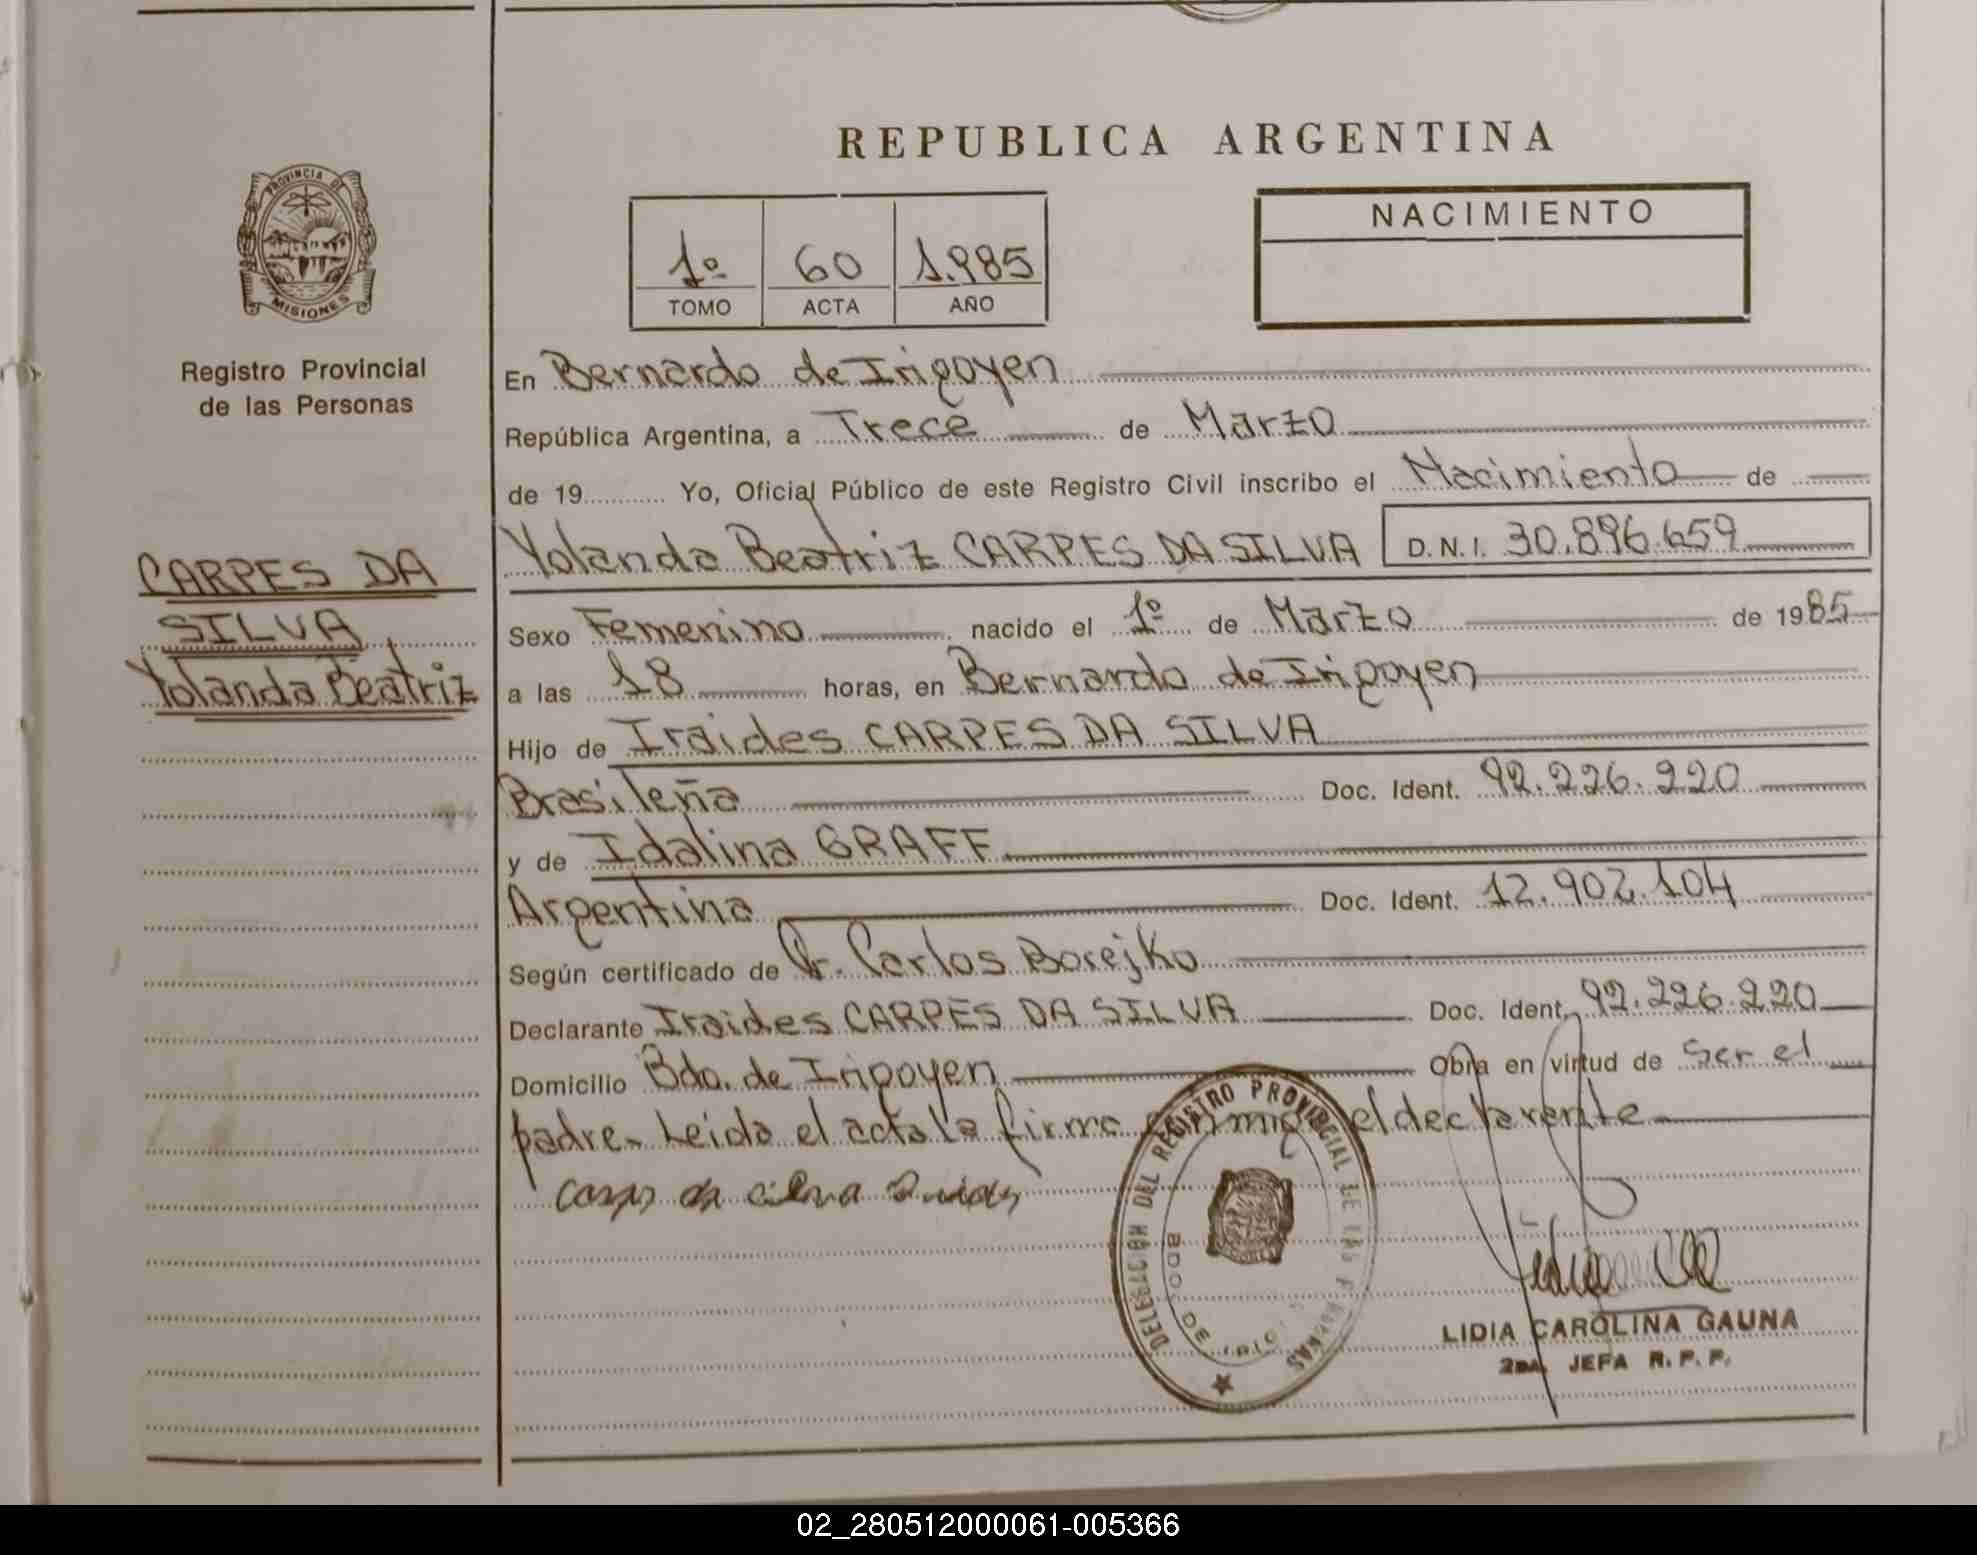 REPUBLICA ARGENTINA
PROVINCIA DE
MISIONES
Registro Provincial
de las Personas
1º 60 1.985
TOMO ACTA AÑO
NACIMIENTO
En Bernardo de Irigoyen
República Argentina, a Trece de Marzo
de 19 Yo, Oficial Público de este Registro Civil inscribo el Nacimiento de
Yolanda Beatriz CARPES DA SILVA D.N.I. 30.896.659
CARPES DA
SILVA,
Yolanda Beatriz
Sexo Femenino nacido el 1º de Marzo de 1985
a las 18 horas, en Bernardo de Irigoyen
Hijo de Iraides CARPES DA SILVA
Brasileña Doc. Ident. 92.226.220
y de Idalina GRAFF
Argentina Doc. Ident. 12.902.104
Según certificado de Dr. Carlos Borejko
Declarante Iraides CARPES DA SILVA Doc. Ident. 92.226.220
Domicilio Bdo. de Irigoyen Obra en virtud de Ser el
padre. Leida el acta la firma conmigo el declarante
da silva
DELEGACION DEL REGISTRO PROVINCIAL DE LAS PERSONAS
BDO. DE
LIDIA CAROLINA GAUNA
2da. JEFA R. P. P.
02_280512000061-005366